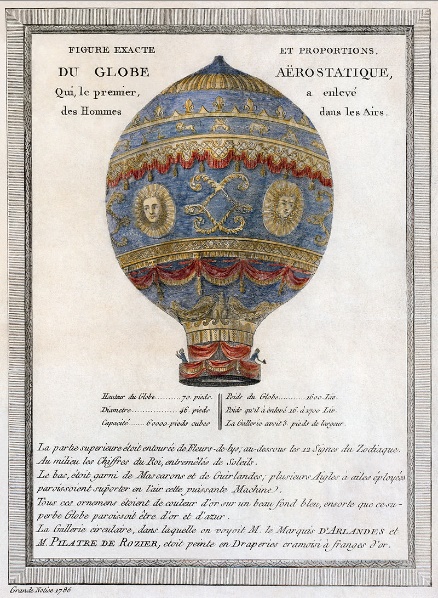 FIGURE EXACTE ET PROPORTIONS,
DU GLOBE AËROSTATIQUE,
Qui, le premier, a enlevé
des Hommes dans les Airs.
Hauteur du Globe..........70 pieds
Diametre..............46 pieds
Capacité......60000 pieds cubes
Poids du Globe..........1600 Liv.
Poids qu'il à enlevé 16 à 1700 Liv.
La Gallerie avoit 3 pieds de largeur
La partie superieure étoit entourée de Fleurs-de-lys, au-dessous les 12 Signes du Zodiaque.
Au milieu les Chiffres du Roi, entremêlés de Soleils.
Le bas, étoit garni de Mascarons et de Guirlandes, plusieurs Aigles à ailes éployées
paroissoient suporter en l'air cette puissante Machine.
Tous ces ornemens étoient de couleur d'or sur un beau fond bleu, ensorte que ce su-
perbe Globe paroissoit être d'or et d'azur.
La Gallerie circulaire, dans laquelle on voyoit M. le Marquis D'ARLANDES et
M. PILATRE DE ROZIER, etoit peinte en Draperies cramoisi à franges d'or.
1786